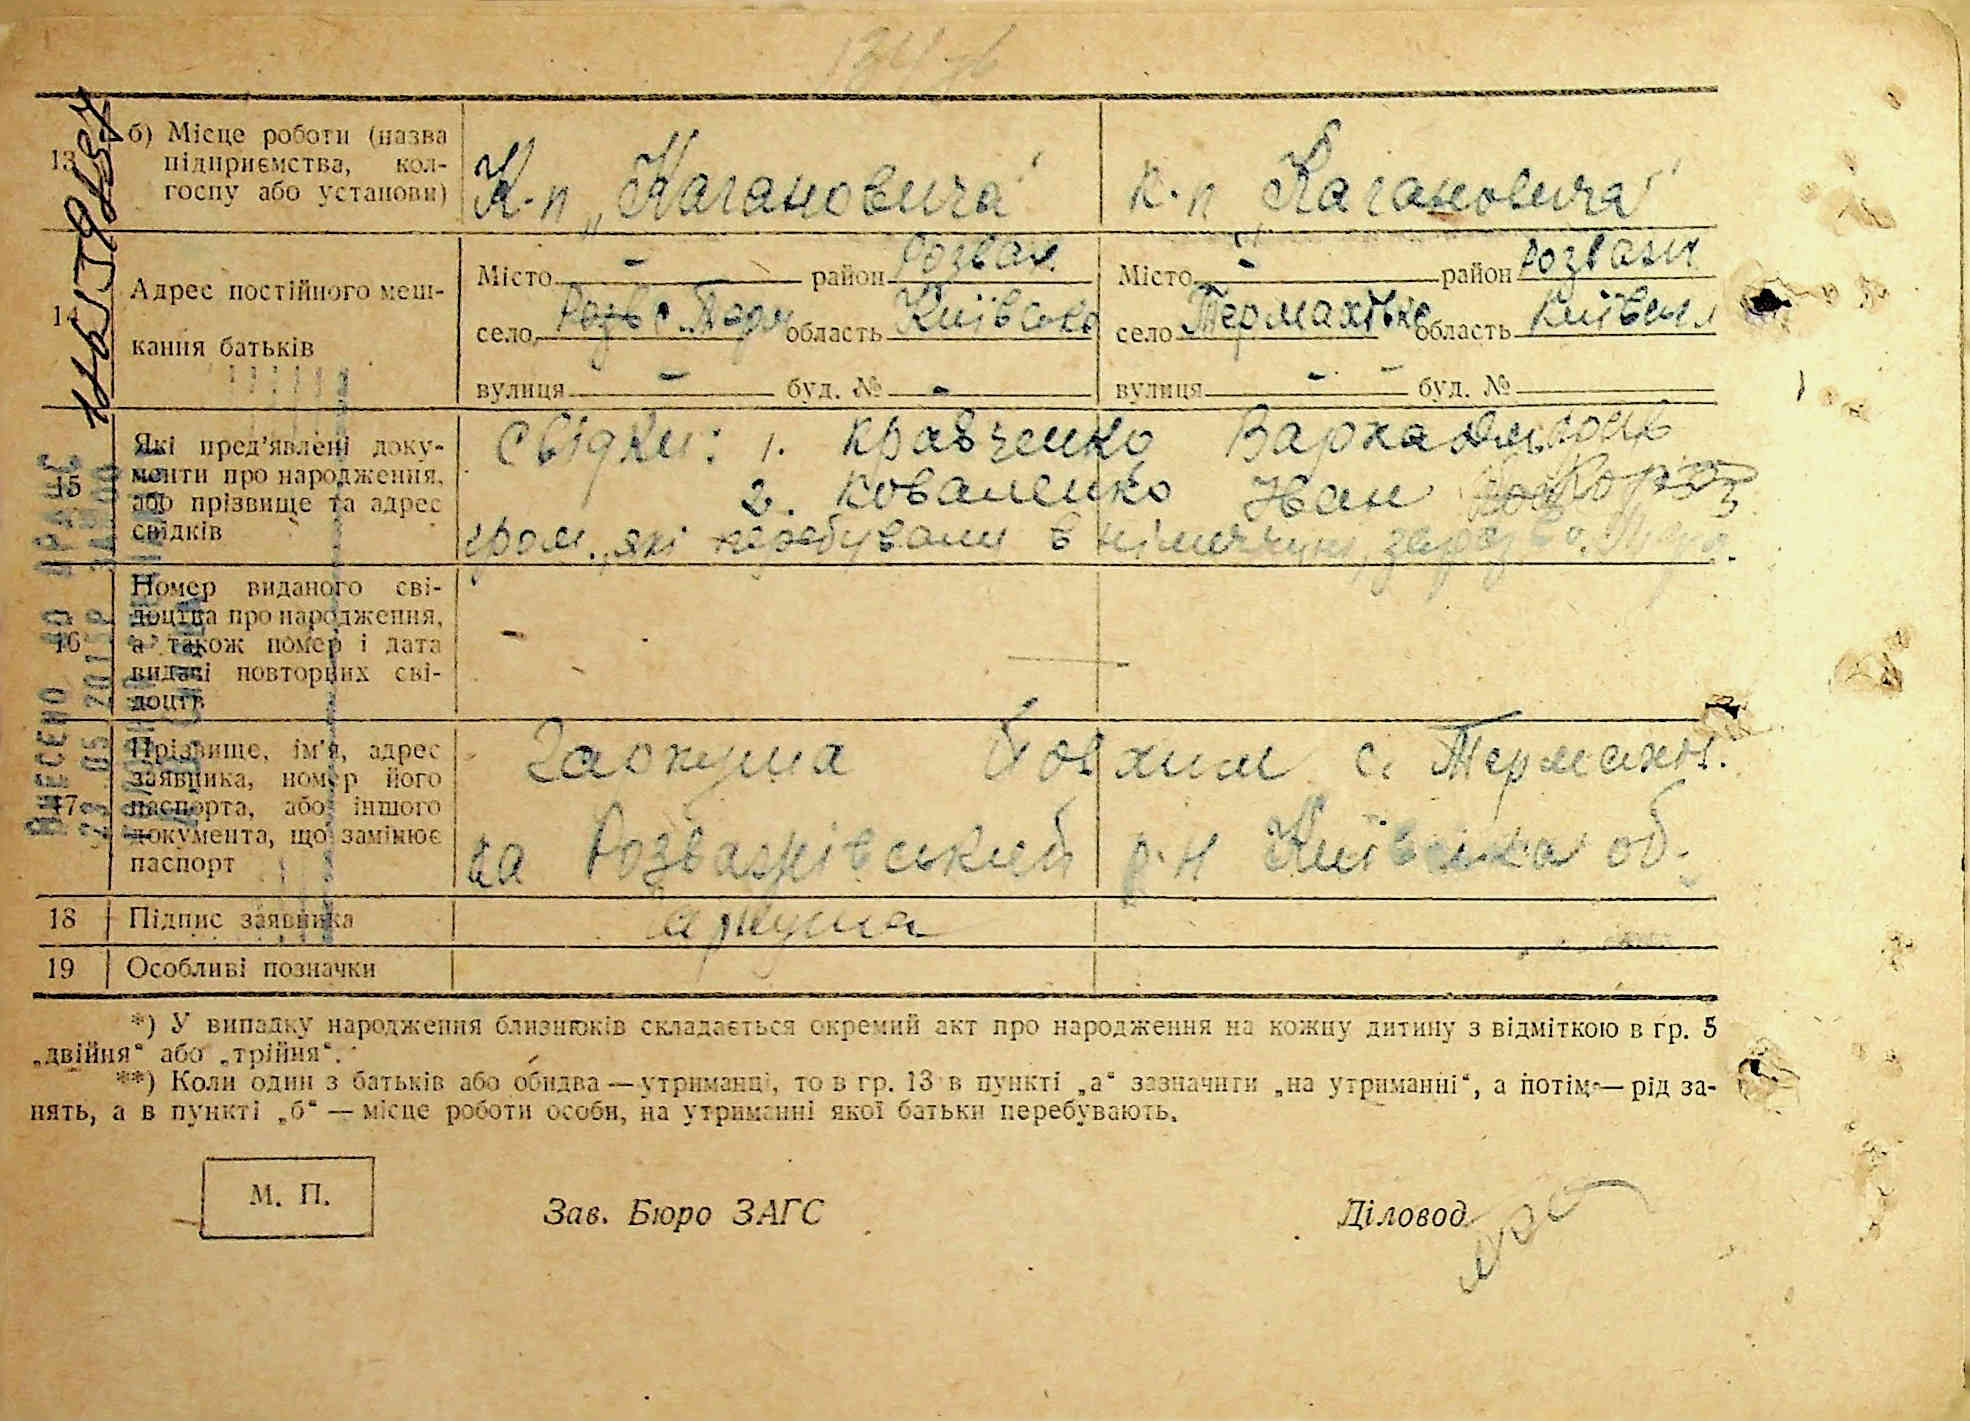 134
13 б) Місце роботи (назва підприємства, колгоспу або установи)
К-п „Кагановича" к-п Кагановича"
14 Адрес постійного мешкання батьків
Місто - район Розваж. Місто - район Розважі
село с. Терм область Київська село Термахівка область Київськ
вулиця - буд. № - вулиця - - буд. №
15 Які пред'явлені документи про народження, або прізвище та адрес свідків
Свідки: 1. Кравченко Варка
2. Коваленко Іван
гром. які перебували в німеччині, зараз
16 Номер виданого свідоцтва про народження, а також номер і дата видачі повторних свідоцтв
-
17 Прізвище, ім'я, адрес заявника, номер його паспорта, або іншого документа, що замінює паспорт
Гаркуша Йовхим с. Термахів.
ка Розважівський р-н Київська об.
18 Підпис заявника
аркуша
19 Особливі позначки
*) У випадку народження близнюків складається окремий акт про народження на кожну дитину з відміткою в гр. 5
„двійня" або „трійня".
**) Коли один з батьків або обидва — утриманці, то в гр. 13 в пункті „а" зазначити „на утриманні", а потім — рід за-
нять, а в пункті „б" — місце роботи особи, на утриманні якої батьки перебувають.
М. П.
Зав. Бюро ЗАГС Діловод
ВНЕСЕНО ДО ДРАЦС